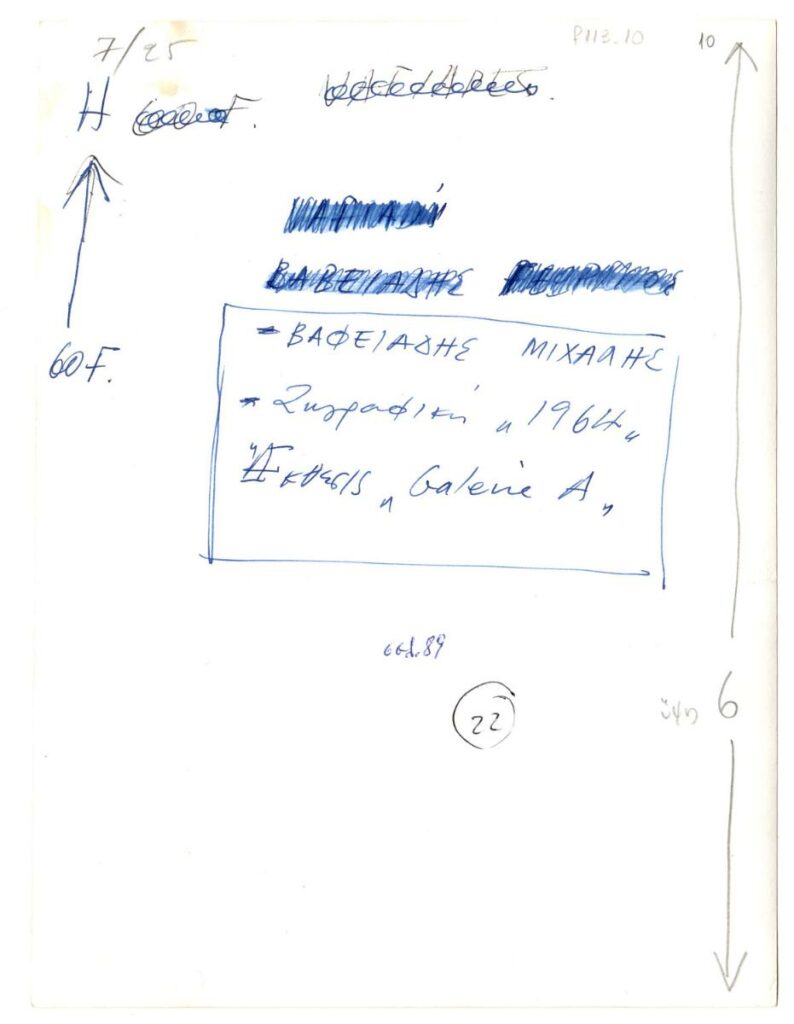 7/25
P113.10
10
Η
ΒΑΒΕΙΑΔΗΣ
- ΒΑΦΕΙΑΔΗΣ ΜΙΧΑΛΗΣ
60 F.
- Ζωγραφική „1964„
„Galerie A„
σελ.89
22
ύψη 6